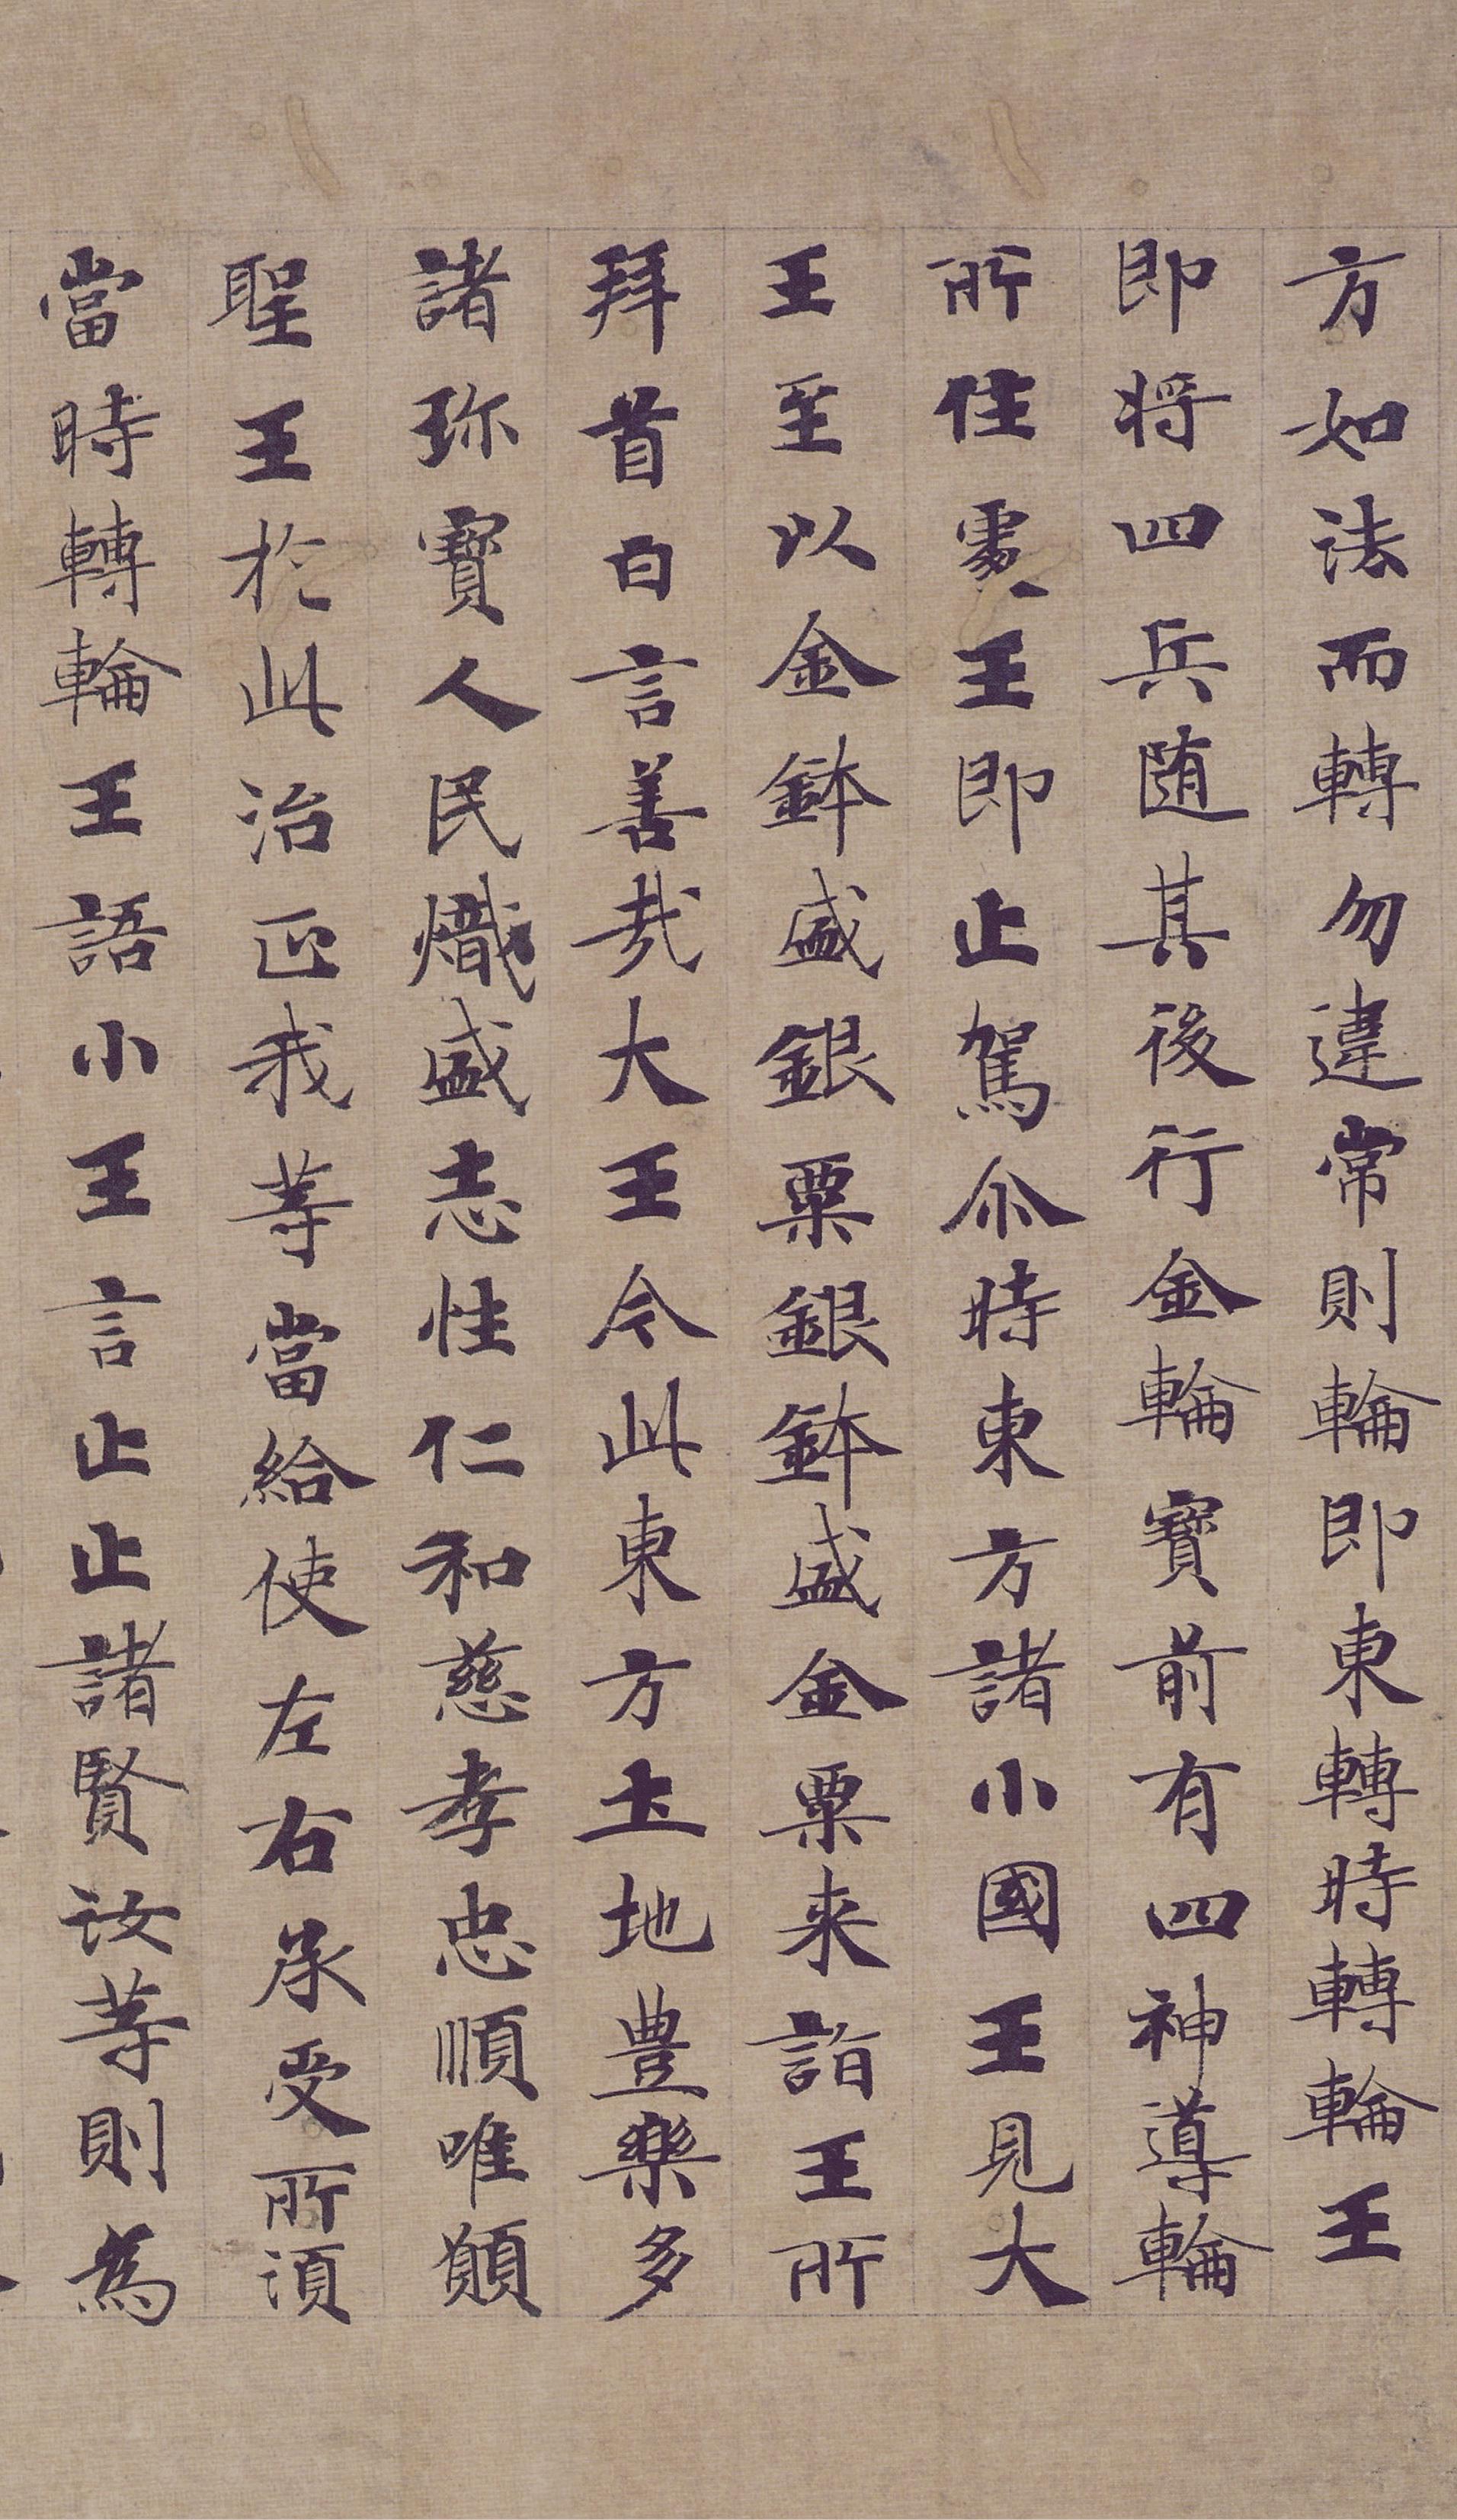 方如法而轉勿違常則輪即東轉時轉輪王
即将四兵随其後行金輪寳前有四神導輪
所住處王即止駕尒時東方諸小國王見大
王至以金鉢盛銀粟銀鉢盛金粟来詣王所
拜首白言善哉大王今此東方土地豊樂多
諸珎寳人民熾盛志性仁和慈孝忠順唯願
聖王於此治正我等當給使左右承受所須
當時轉輪王語小王言止止諸賢汝等則為